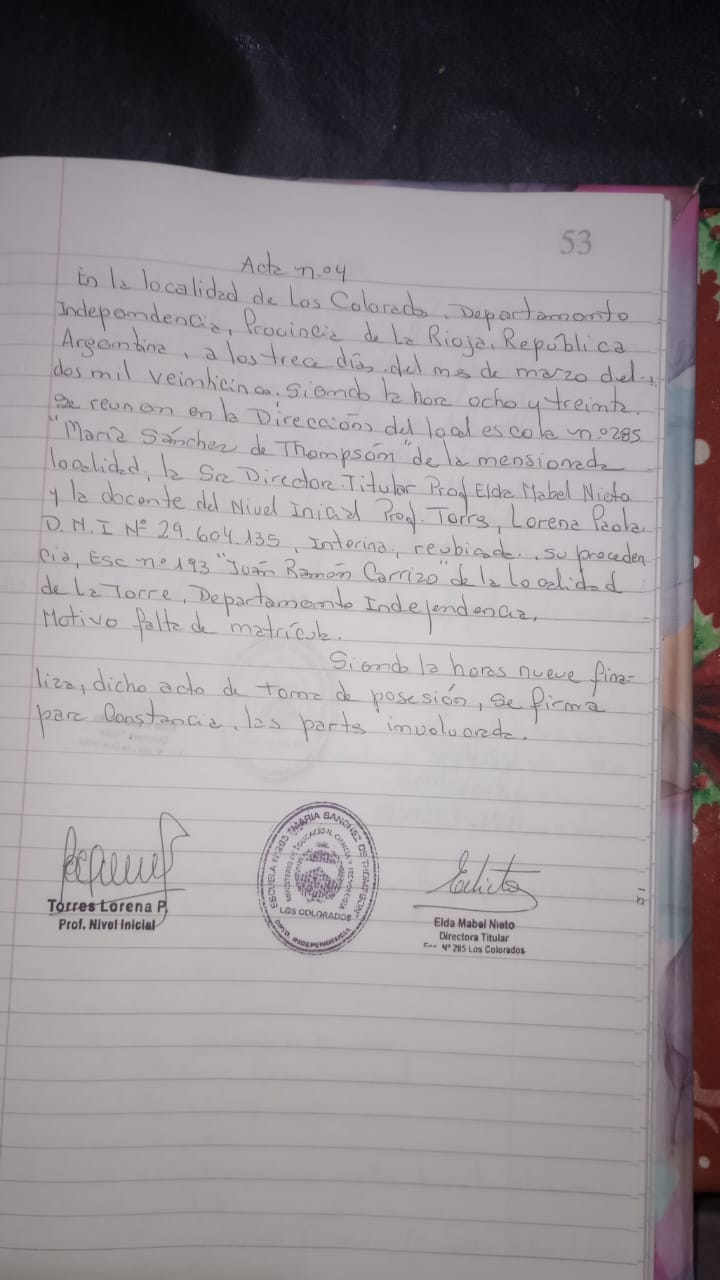 53
Acta n.º4
En la localidad de Los Colorado, Departamento
Independencia, Provincia de La Rioja, República
Argentina, a los trece días del mes de marzo del
dos mil veinticinco, siendo la hora ocho y treinta,
se reunen en la Direccións del local escola n.º285
"María Sánchez de Thompsón" de la mensionada
localidad, la Sra Director Titular Prof Elda Mabel Nieto
y la docente del Nivel Inicial Prof. Torres, Lorena Paola
D.N.I Nº 29.604.135, Interina, reubicada, su proceden
cia, Esc nº 193 "Juán Ramón Carrizo" de la Localidad
de La Torre, Departamento Independencia,
Motivo falta de matrícula.
Siendo la horas nueve fina=
liza, dicho acto de toma de posesión, se firma
para Constancia, las parts involucrada.
Torres Lorena P.
Prof. Nivel Inicial
ESCUELA Nº285 "MARIA SANCHEZ DE THOMPSON"
MINISTERIO DE EDUCACION, CIENCIA Y TECNOLOGIA
LOS COLORADOS
DPTO. INDEPENDENCIA
Elda Mabel Nieto
Directora Titular
Nº 285 Los Colorados